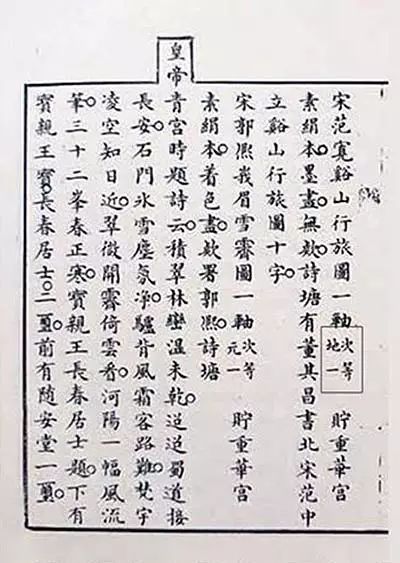 宋范寬谿山行旅圖一軸次等地一 貯重華宮
素絹本。墨畫。無欵。詩塘有董其昌書北宋范中
立谿山行旅圖十字。
宋郭熙峩眉雪霽圖一軸次等元一 貯重華宮
素絹本。着色畫。欵署郭熙。詩塘
皇帝青宮時題詩云。積翠林巒溫未乾。迢迢蜀道接
長安。石門氷雪塵氛淨。驢背風霜客路難。梵宇
凌空知日近。翠微開霽倚雲看。河陽一幅風流
筆。三十二峯春正寒。寶親王長春居士題。下有
寶親王寶。長春居士。二璽。前有隨安堂一璽。